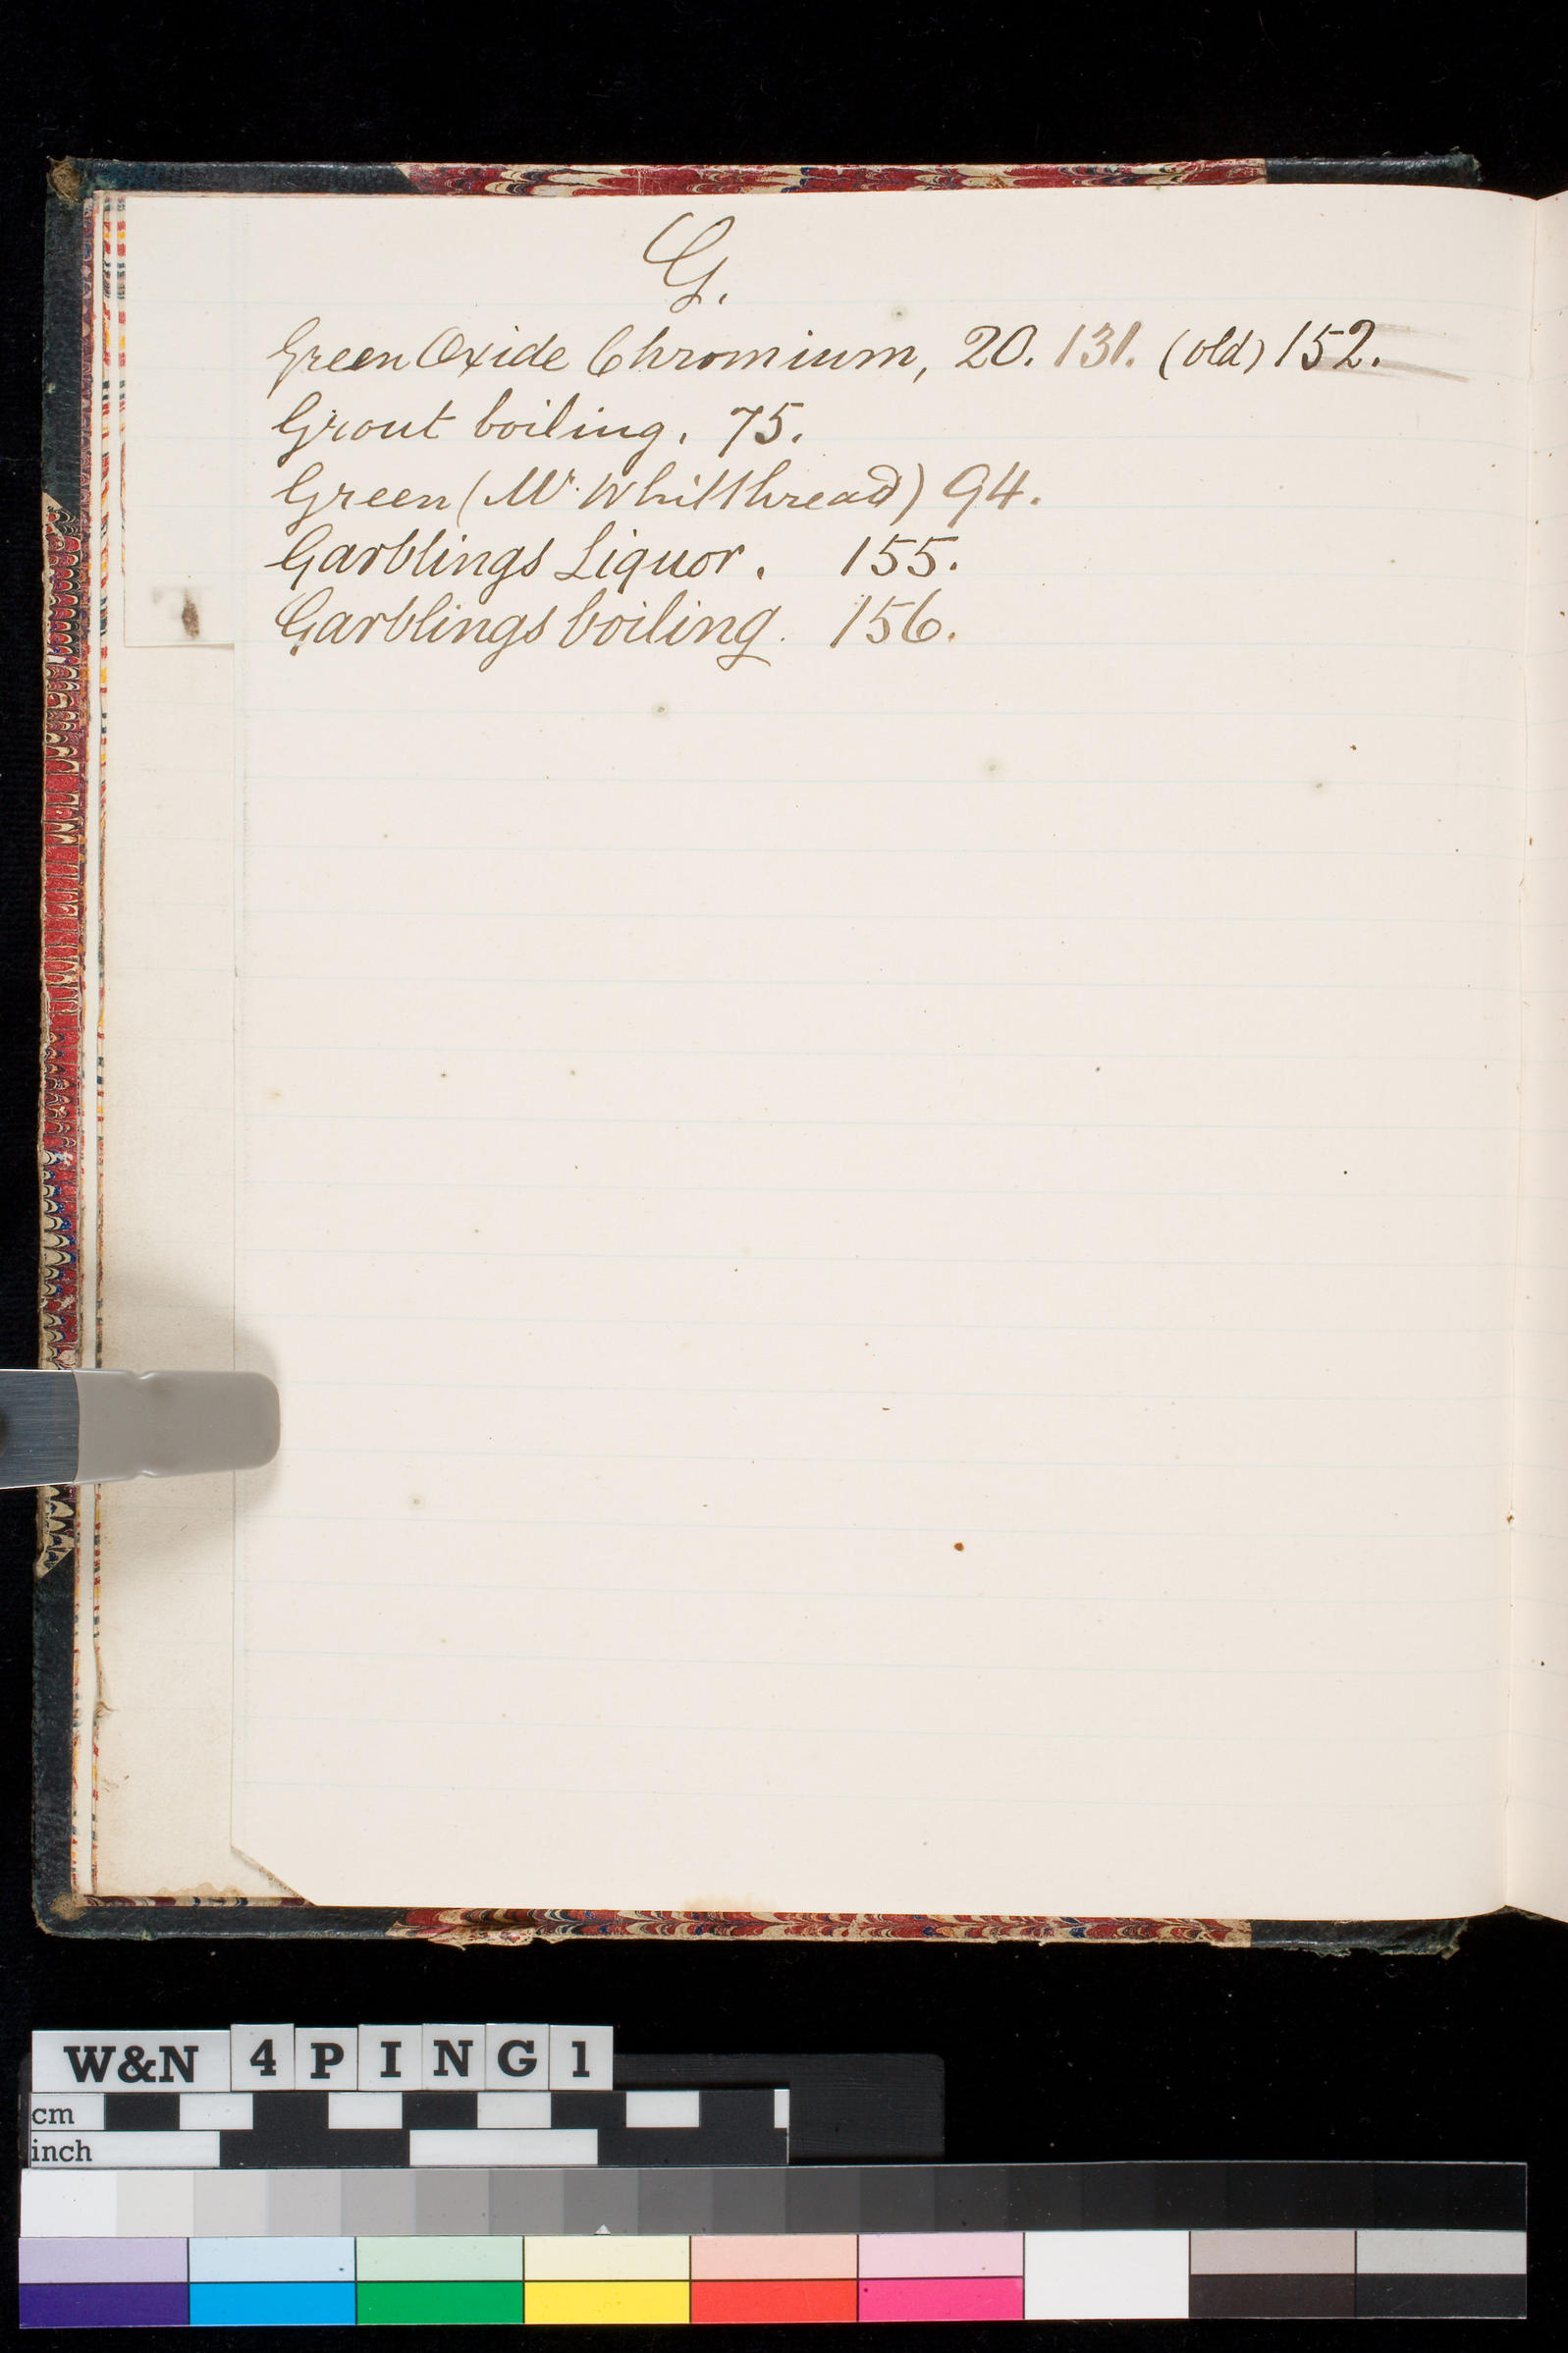 G.
Green Oxide Chromium, 20. 131. (old) 152.
Grout boiling. 75.
Green (Mr. Whitthread) 94.
Garblings Liquor. 155.
Garblings boiling. 156.
W&N 4PING1
cm
inch